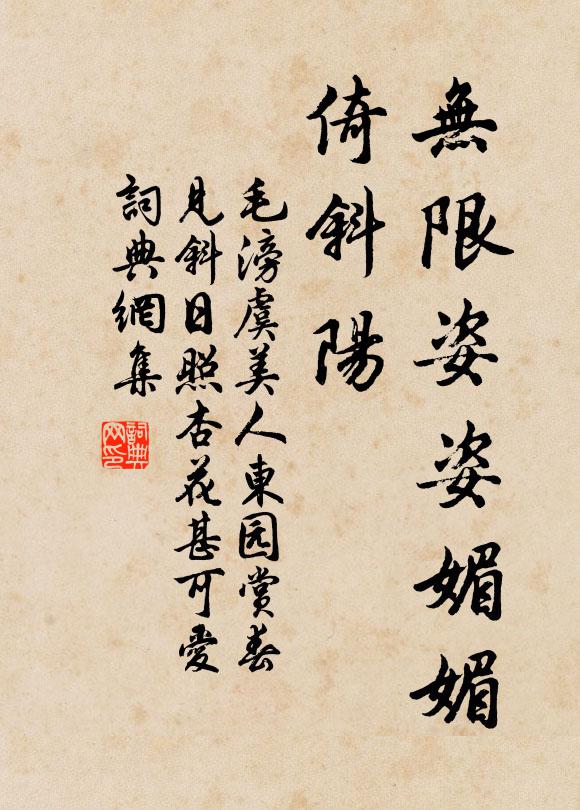 無限姿姿媚媚
倚斜陽
毛滂虞美人東园賞春
見斜日照杏花甚可愛
詞典網集
詞典
网印